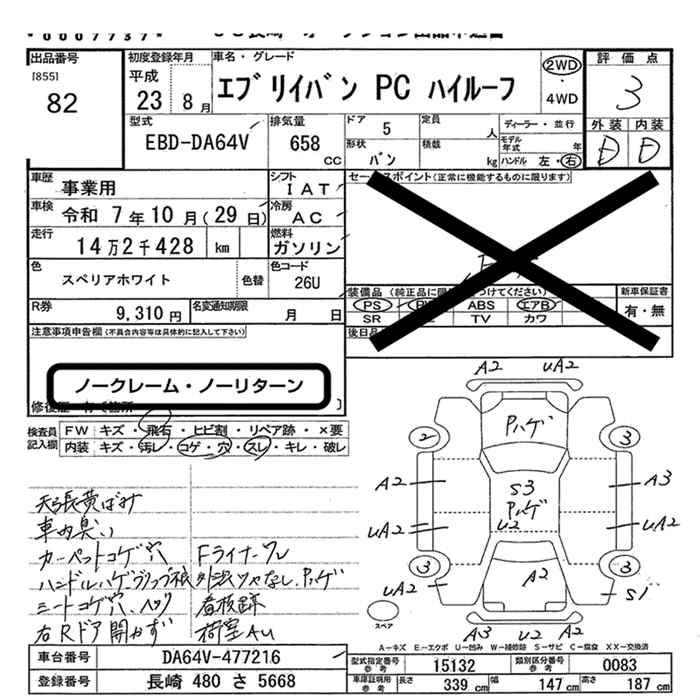 出品番号
[855]
82
初度登録年月
平成
23年 8月
車名・グレード
エブリイバン PC ハイルーフ
2WD
4WD
評価点
3
外装 内装
D D
型式
EBD-DA64V
排気量
658
CC
ドア
5
定員
人
ディーラー・並行
モデル年式
年
形状
バン
積載
kg
ハンドル 左・右
車歴
事業用
シフト
IAT
セールスポイント(正常に機能するものに限ります)
車検
令和 7年10月(29日)
冷房
AC
走行
14万2千428 km
燃料
ガソリン
色
スペリアホワイト
色替
色コード
26U
装備品
PS
ABS
エアB
SR
TV
カワ
新車保証書
有・無
R券
9,310円
名変通知期限
月 日
後日品
注意事項申告欄(不具合内容等は具体的に記入して下さい)
ノークレーム・ノーリターン
検査員記入欄
FW キズ・飛石・ヒビ割・リペア跡・×要
内装 キズ・汚レ・コゲ・穴・スレ・キレ・破レ
天張黄ばみ
車内臭い
カーペットコゲ穴 Fライナーワレ
外装ツヤなし、Pハゲ
シートコゲ穴、
看板跡
右Rドア開かず 荷室AU
A2 UA2
Pハゲ
2 3
A2 S3 A3
Pハゲ
UA2 U2 UA2
3 3
UA2 A2 S1
スペア
A3 U2 UA2
A－キズ E－エクボ U－凹み W－補修跡 S－サビ C－腐食 XX－交換済
車台番号
DA64V-477216
型式指定番号
参考
15132
類別区分番号
参考
0083
登録番号
長崎 480 さ 5668
車庫証明用
参考
長さ 339 cm 幅 147 cm 高さ 187 cm